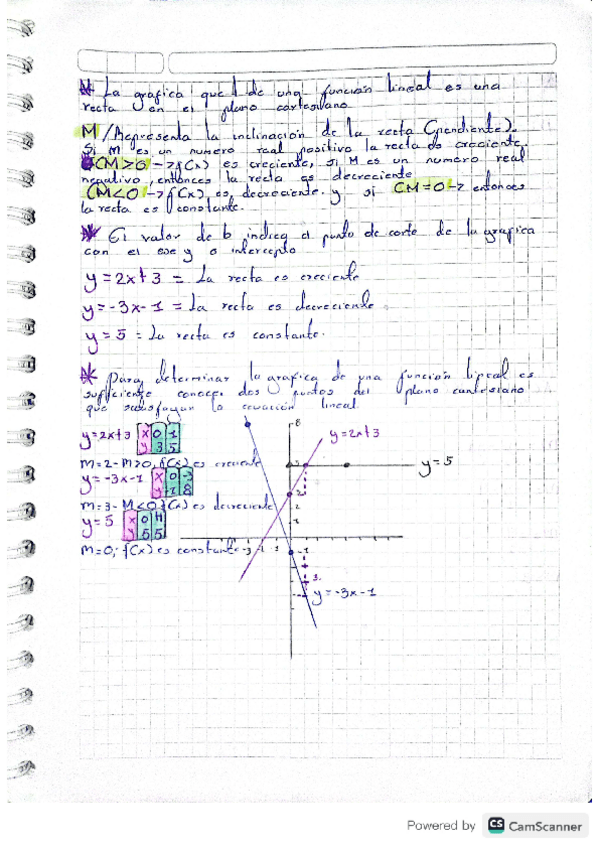 * La grafica que de una función lineal es una
recta en el plano cartesiano
M / Representa la inclinación de la recta (pendiente).
Si m es un numero real positivo la recta es creciente.
(M>0 -> f(x) es creciente, si M es un numero real
negativo, entonces la recta es decreciente
(M<0 -> f(x), es, decreciente. y si CM=0 -> entonces
la recta es constante.
* El valor de b indica el punto de corte de la grafica
con el eje y o intercepto
y = 2x+3 = La recta es creciente
y = -3x-1 = La recta es decreciente
y = 5 = La recta es constante.
* Para determinar la grafica de una función lineal es
sufficiente conocer dos puntos del plano cartesiano
que satisfagan la ecuación lineal.
y=2x+3 x 0 1
y 3 5
m=2 - M>0, f(x) es creciente
y = -3x-1 x 0 -3
y -1 8
m=3 - M<0 f(x) es decreciente
y = 5 x 0 4
y 5 5
m=0; f(x) es constante
8
y=2x+3
y=5
3
2
1
-3 -2 -1
-1
3
y=-3x-1
Powered by CS CamScanner